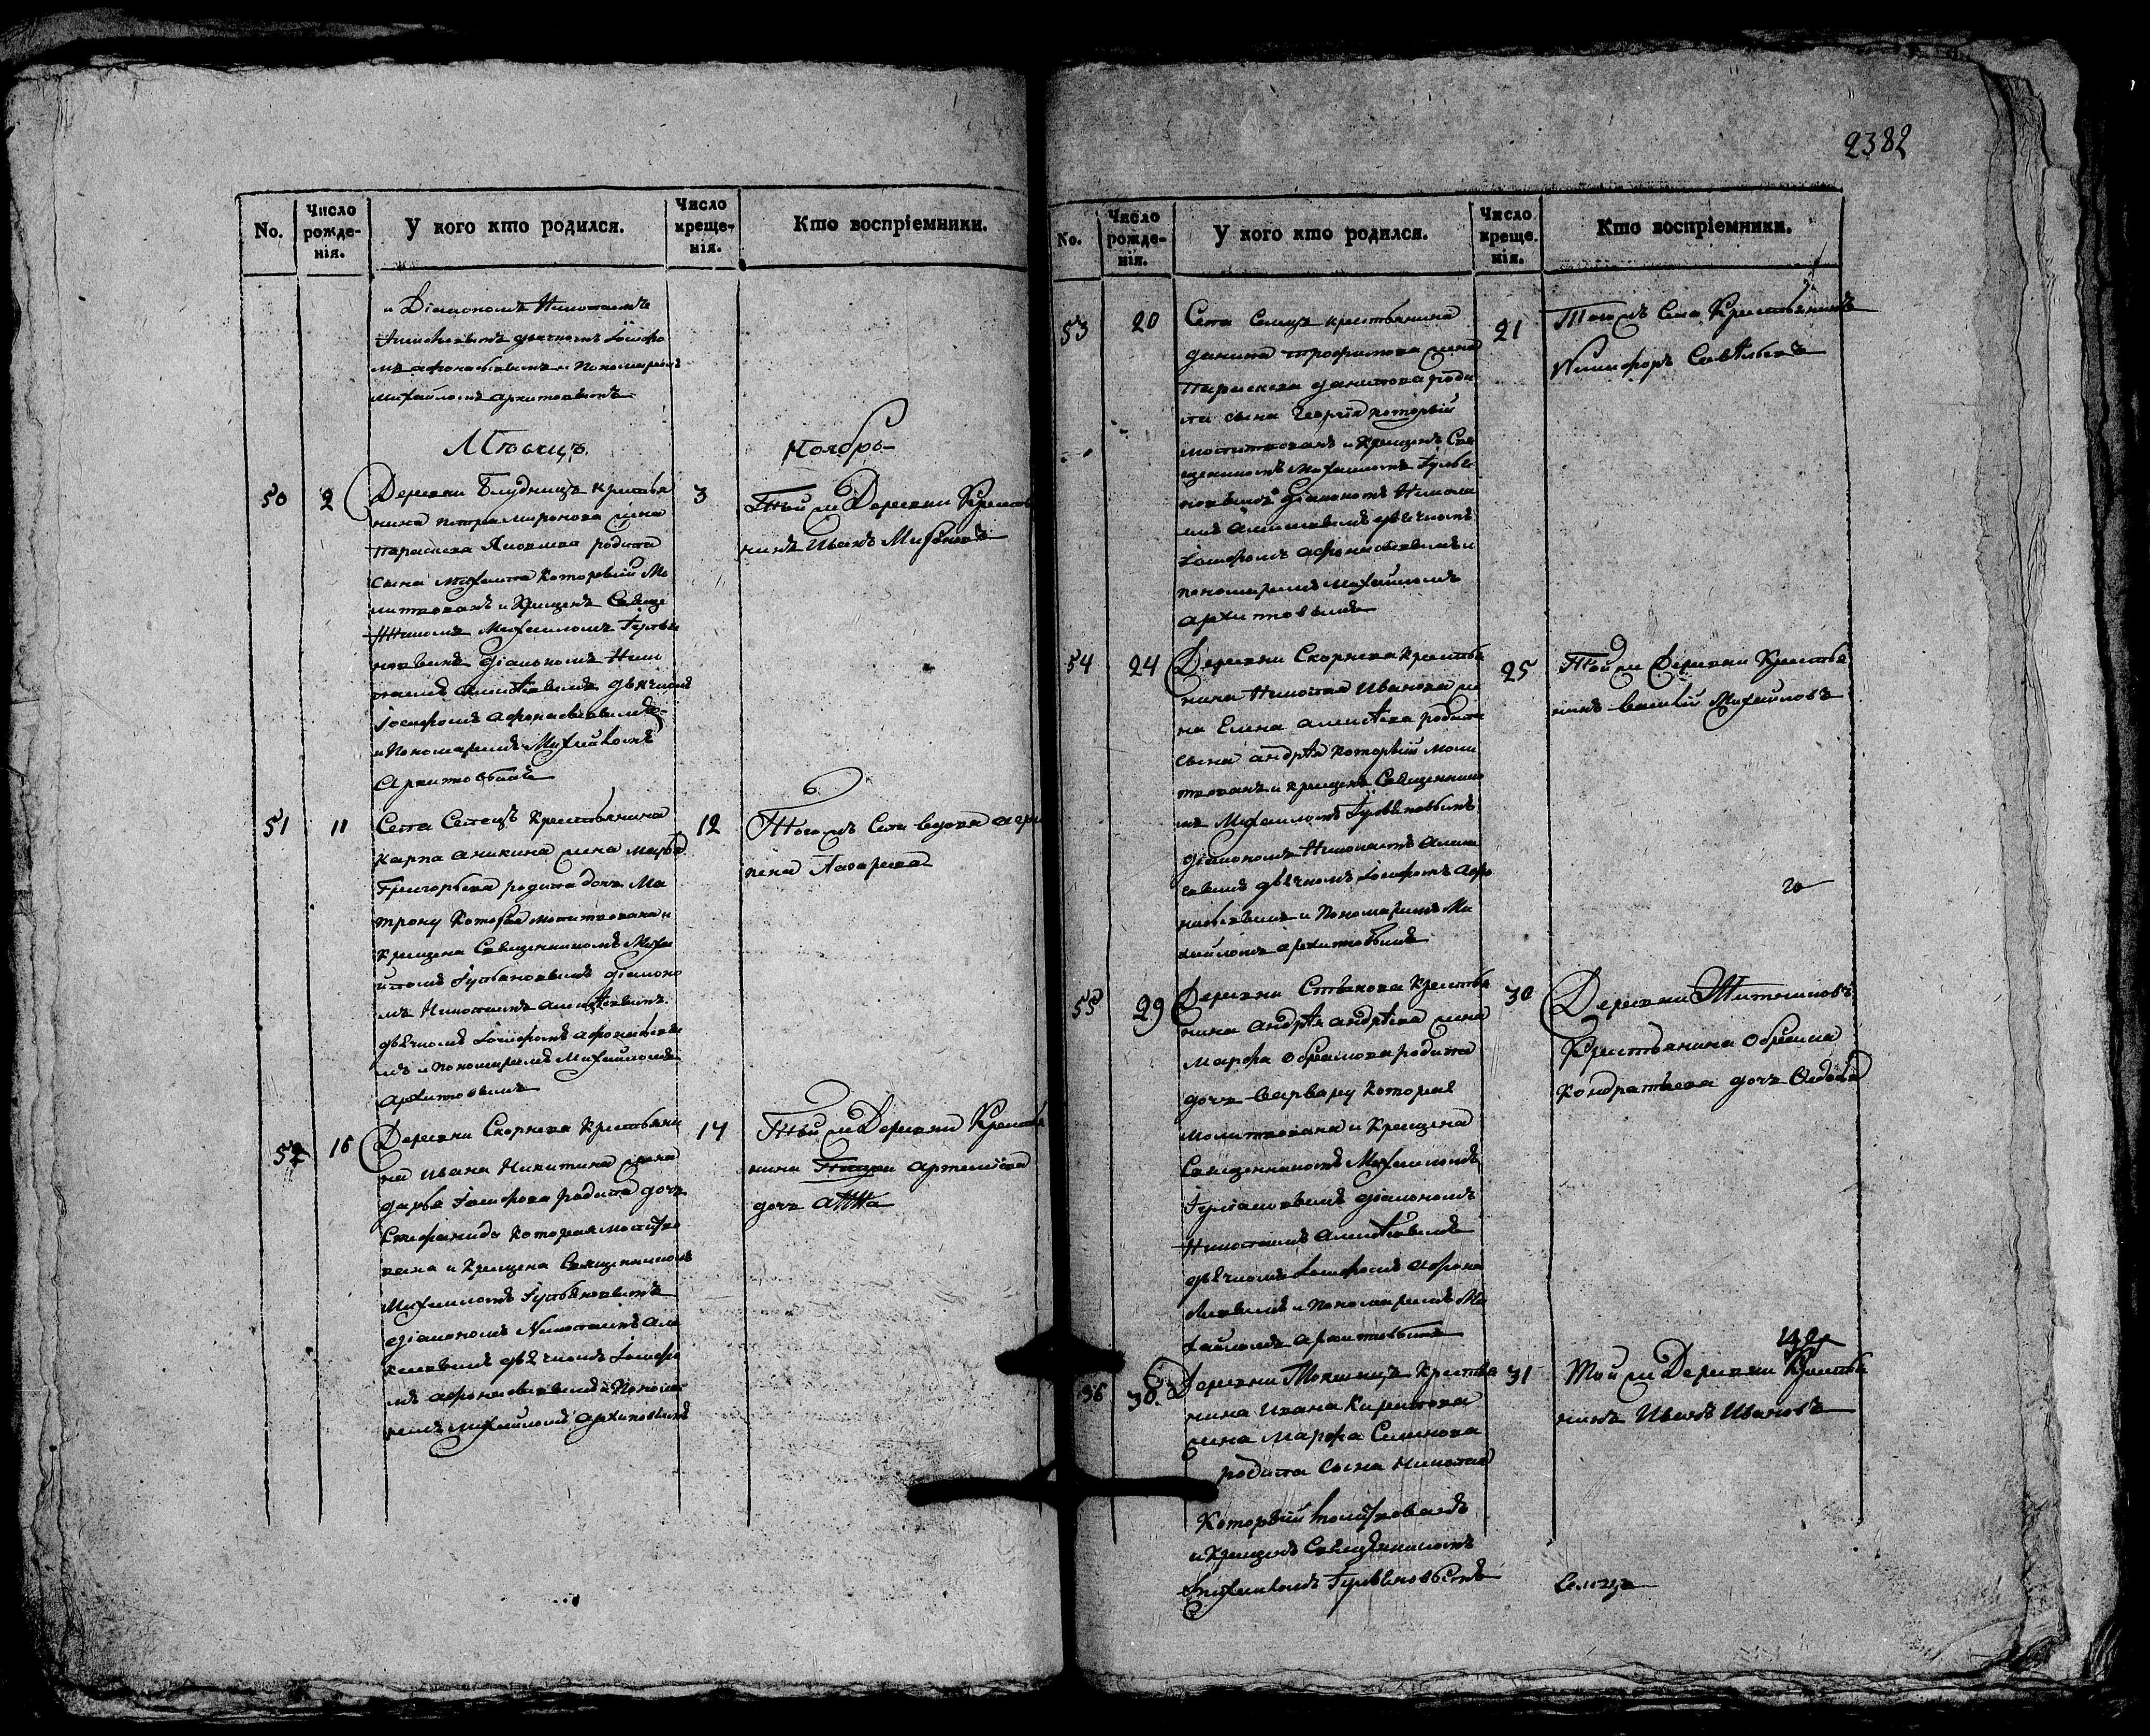 No.
Число рожде-нія.
У кого кто родился.
Число креще-нія.
Кто воспріемники.
и Діакономъ Николаемъ
Алексѣевымъ дьячкомъ Іосифо
мъ афонасьевымъ и Пономаремъ
Михайломъ архиповымъ
Мѣсяцъ
Ноябрь
50
2
Деревни Блудницъ крестья
нина петра миронова жена
параскева Яковлева родила
сына михаила Который Мо
литвованъ и Крещенъ Свяще
нникомъ Михаиломъ Гулья
новымъ діакономъ Нико
лаемъ алексѣевымъ дьячкомъ
Іосифомъ афонасьевымъ
и Пономаремъ Михайломъ
Архиповымъ
3
Той же Деревни Крестья
нинъ Иванъ Мироновъ
51
11
Села Селецъ Крестьянина
карпа аникина жена марья
Григорьева родила дочь Ма
трону Которая молитвована и
Крещена Священникомъ Миха
йломъ Гульяновымъ діаконо
мъ Николаемъ алексѣевымъ
дьячкомъ Іосифомъ афонасьевы
мъ и пономаремъ Михайломъ
архиповымъ
12
Тогожъ Села вдова агри
пена Лазарева
52
16
Деревни Скорнева Крестьяни
на ивана Никитина жена
дарья Іосифова родила дочь
Стефаниду Которая молитво
вана и Крещена Священникомъ
Михаиломъ Гульяновымъ
діакономъ Николаемъ Але
ксеевымъ дьячкомъ Іосифо
мъ афонасьевымъ и Понома
ремъ михайломъ архиповымъ
17
Той же Деревни Крестья
нина артемьева
дочь анна
2382
No.
Число рожде-нія.
У кого кто родился.
Число креще-нія.
Кто воспріемники.
53
20
Села Селецъ крестьянина
данила трофимова жена
параскева данилова роди
ла сына Георгія который
молитвованъ и Крещенъ Свя
щенникомъ Михаиломъ Гулья
новымъ діакономъ Никола
емъ Алексеевымъ дьячкомъ
Іосифомъ афонасьевымъ и
пономаремъ Михайломъ
архиповымъ
21
Тогожъ Села Крестьянинъ
Никифоръ Савѣльевъ
54
24
Деревни Скорнева Крестья
нина Николая Иванова же
на Елена алексѣева родила
сына андрѣя Который моли
твованъ и крещенъ Священнико
мъ Михаиломъ Гульяновымъ
діакономъ Николаемъ Алек
сеевымъ дьячкомъ Іосифомъ Афо
насьевымъ и Пономаремъ Ми
хайломъ архиповымъ
25
Той же Деревни Крестья
нинъ василій Михайловъ
55
29
Деревни Крестья
нина андрѣя андрѣева жена
Марфа ефремова родила
дочь варвару Которая
Молитвована и Крещена
Священникомъ Михаиломъ
Гуліановымъ діакономъ
Николаемъ Алексѣевымъ
дьячкомъ Іосифомъ афона
сьевымъ и Пономаремъ Ми
хайломъ Архиповымъ
30
Деревни Житниковъ
Крестьянина Ефрема
Кондратьева дочь
56
30.
Деревни Крестья
нина ивана Кирилова
жена Марфа Семенова
родила сына николая
Который молитвованъ
и Крещенъ Священникомъ
михаиломъ Гульяновымъ
31
Той же Деревни Крестья
нинъ Иванъ Ивановъ